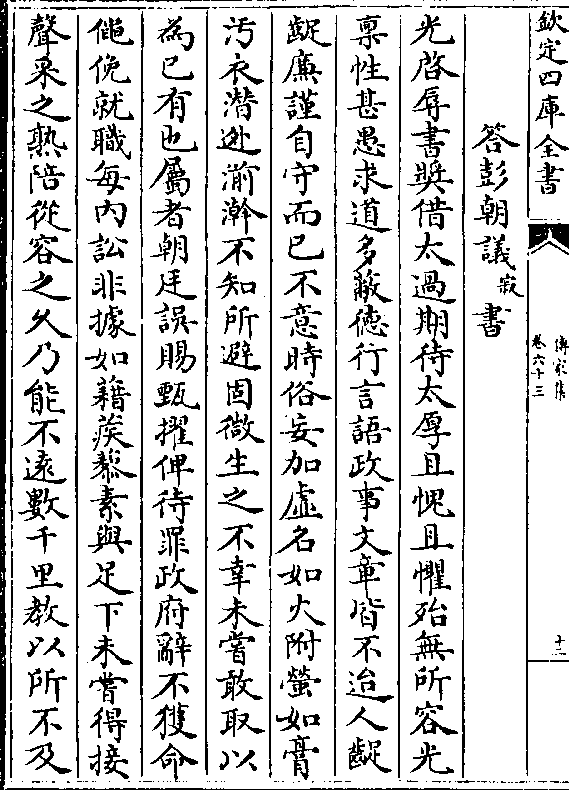 欽定四庫全書
傳家集
卷六十三
十二
答彭朝議寂書
光啓辱書奬借太過期待太厚且愧且懼殆無所容光
禀性甚愚求道多蔽德行言語政事文章皆不迨人齪
齪廉謹自守而已不意時俗妄加虛名如火附螢如膏
汚衣潛逃湔澣不知所避固微生之不幸未嘗敢取以
為已有也屬者朝廷誤賜甄擢俾待罪政府辭不獲命
僶俛就職每内訟非據如藉蒺藜素與足下未嘗得接
聲采之熟陪從容之久乃能不遠數千里教以所不及